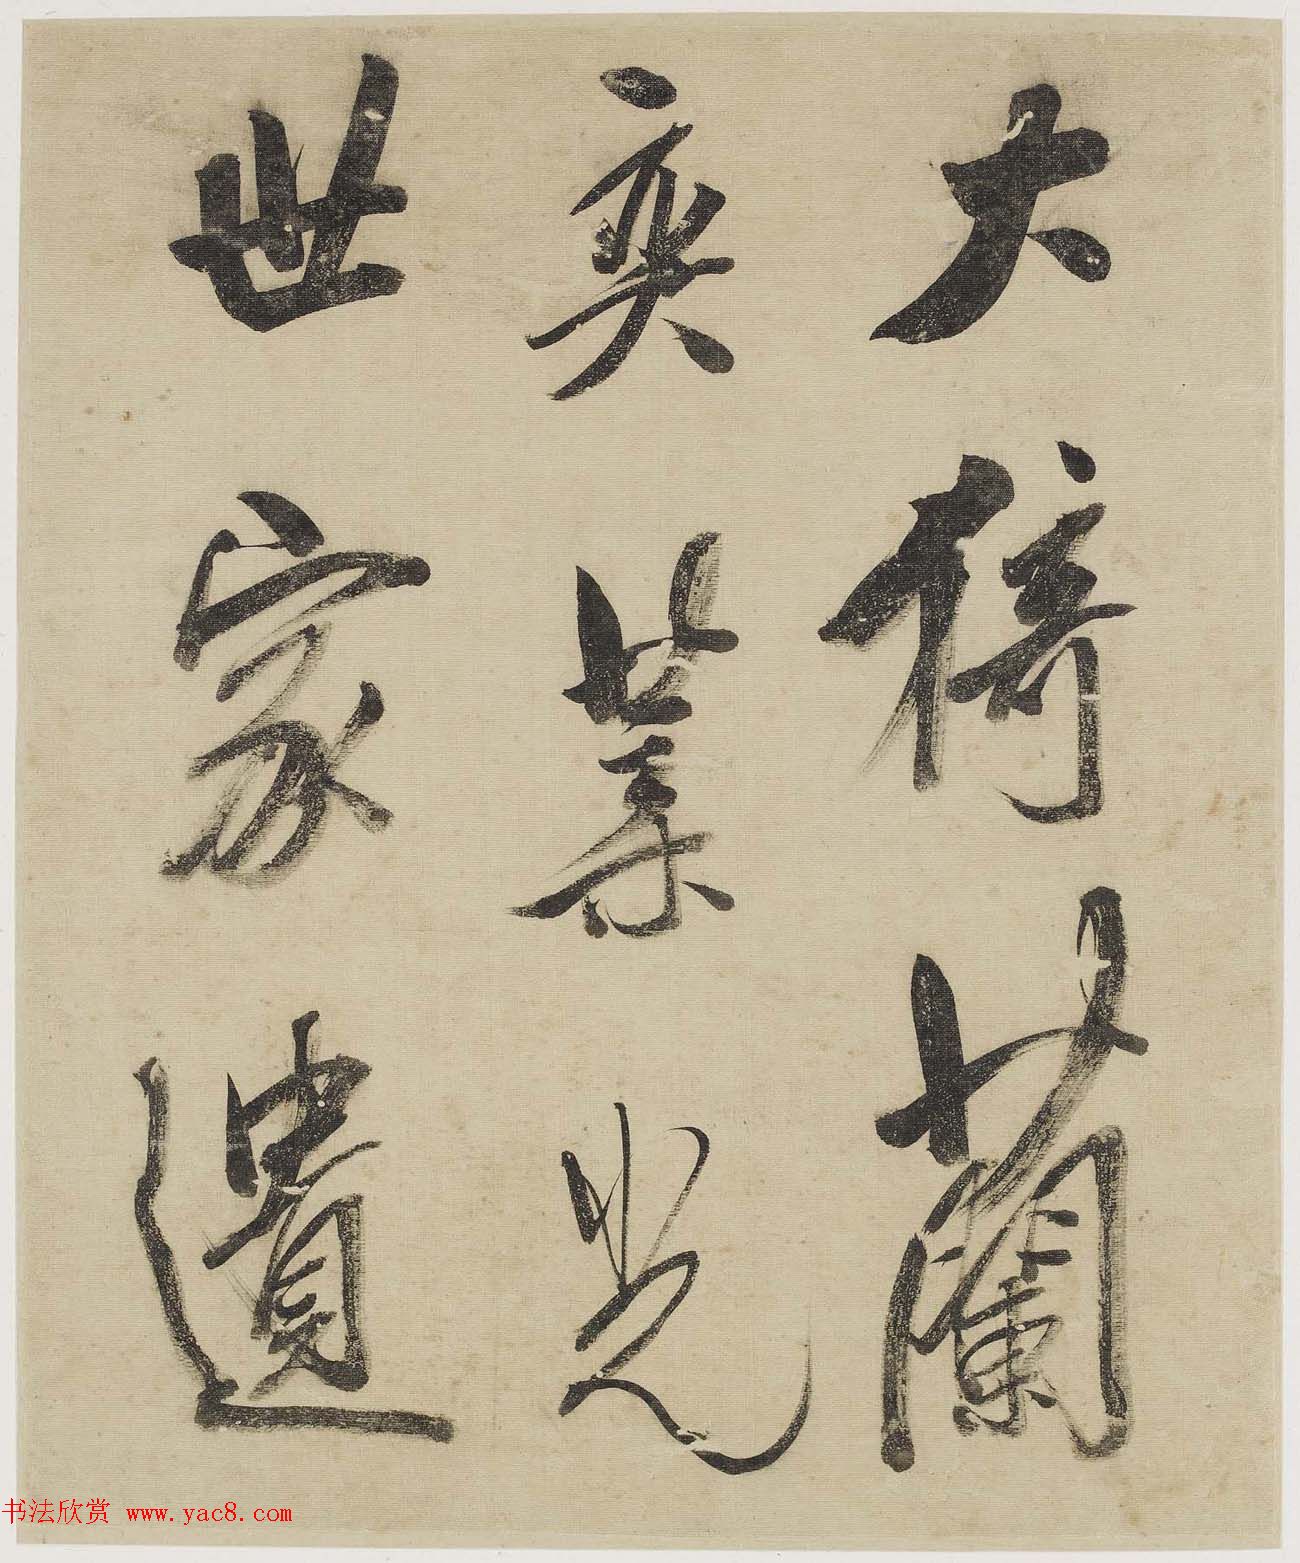 大猗蘭
奕業光
世家遺
书法欣赏 www.yac8.com